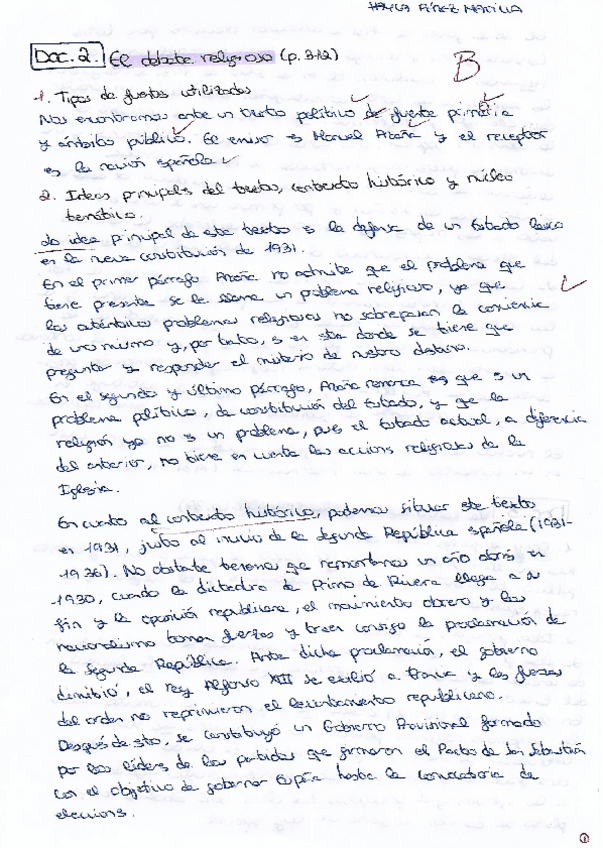 Doc. 2. El debate religioso (p. 312)
B
1. Tipos de fuentes utilizados
Nos encontramos ante un texto político de fuente primaria
y ámbito público. El emisor es Manuel Azaña y el receptor
es la nación española.
2. Ideas principales del texto, contexto histórico y núcleo
temático.
La idea principal de este texto es la defensa de un Estado laico
en la nueva constitución de 1931.
En el primer párrafo Azaña no admite que el problema que
tiene presente se le llame un problema religioso, ya que
los auténticos problemas religiosos no sobrepasan la conciencia
de uno mismo y, por tanto, es en esta donde se tiene que
preguntar y responder el misterio de nuestro destino.
En el segundo y último párrafo, Azaña remarca que es un
problema político, de constitución del Estado, y que la
religión ya no es un problema, pues el Estado actual, a diferencia
del anterior, no tiene en cuenta las accions religiosas de la
Iglesia.
En cuanto al contexto histórico, podemos situar este texto
en 1931, justo al inicio de la Segunda República española (1931-
1936). No obstante tenemos que remontarnos un año atrás en
1930, cuando la dictadura de Primo de Rivera llega a su
fin y la oposición republicana, el movimiento obrero y los
nacionalismo toman fuerzas y traen consigo la proclamación de
la Segunda República. Ante dicha proclamación, el gobierno
dimitió, el rey Alfonso XIII se exilió a Francia y las fuerzas
del orden no reprimieron el levantamiento republicano.
Después de esto, se constituyó un Gobierno Provisional formado
por los líderes de los partidos que firmaron el Pacto de San Sebastián
con el objetivo de gobernar España hasta la convocatoria de
elecciones.
1